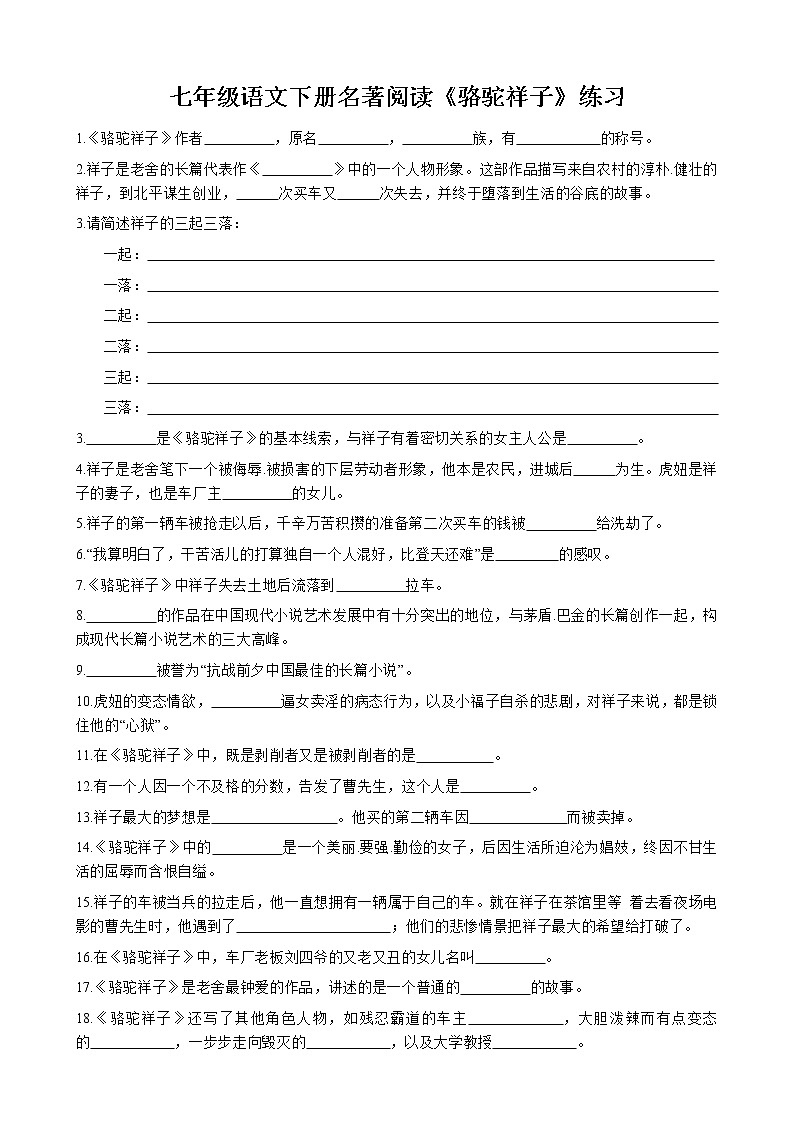 七年级语文下册名著阅读《骆驼祥子》练习
1.《骆驼祥子》作者__________，原名__________，__________族，有____________的称号。
2.祥子是老舍的长篇代表作《__________》中的一个人物形象。这部作品描写来自农村的淳朴.健壮的
祥子，到北平谋生创业，______次买车又______次失去，并终于堕落到生活的谷底的故事。
3.请简述祥子的三起三落：
一起：________________________________________
一落：________________________________________
二起：________________________________________
二落：________________________________________
三起：________________________________________
三落：________________________________________
3.__________是《骆驼祥子》的基本线索，与祥子有着密切关系的女主人公是__________。
4.祥子是老舍笔下一个被侮辱.被损害的下层劳动者形象，他本是农民，进城后______为生。虎妞是祥
子的妻子，也是车厂主__________的女儿。
5.祥子的第一辆车被抢走以后，千辛万苦积攒的准备第二次买车的钱被__________给洗劫了。
6.“我算明白了，干苦活儿的打算独自一个人混好，比登天还难”是_________的感叹。
7.《骆驼祥子》中祥子失去土地后流落到__________拉车。
8.__________的作品在中国现代小说艺术发展中有十分突出的地位，与茅盾.巴金的长篇创作一起，构
成现代长篇小说艺术的三大高峰。
9.__________被誉为“抗战前夕中国最佳的长篇小说”。
10.虎妞的变态情欲，__________逼女卖淫的病态行为，以及小福子自杀的悲剧，对祥子来说，都是锁
住他的“心狱”。
11.在《骆驼祥子》中，既是剥削者又是被剥削者的是___________。
12.有一个人因一个不及格的分数，告发了曹先生，这个人是__________。
13.祥子最大的梦想是__________________。他买的第二辆车因______________而被卖掉。
14.《骆驼祥子》中的__________是一个美丽.要强.勤俭的女子，后因生活所迫沦为娼妓，终因不甘生
活的屈辱而含恨自缢。
15.祥子的车被当兵的拉走后，他一直想拥有一辆属于自己的车。就在祥子在茶馆里等 着去看夜场电
影的曹先生时，他遇到了______________________；他们的悲惨情景把祥子最大的希望给打破了。
16.在《骆驼祥子》中，车厂老板刘四爷的又老又丑的女儿名叫__________。
17.《骆驼祥子》是老舍最钟爱的作品，讲述的是一个普通的__________的故事。
18.《骆驼祥子》还写了其他角色人物，如残忍霸道的车主_____________，大胆泼辣而有点变态
的____________，一步步走向毁灭的____________，以及大学教授____________。